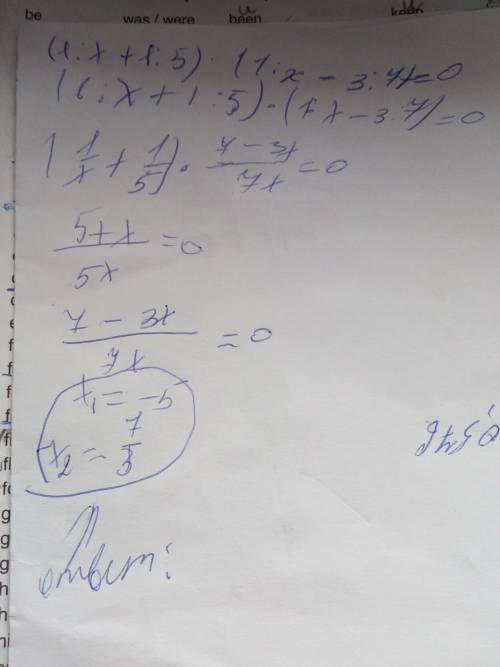 be was / were been keep
(1:x + 1:5) · (1:x - 3:7)=0
(1:x + 1:5) · (1x - 3:7)=0
(1/x + 1/5) · (7 - 3x)/(7x) = 0
(5+x)/(5x) = 0
(7 - 3x)/(7x) = 0
x₁ = -5
x₂ = 7/3
ответ: